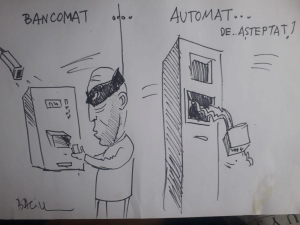 BANCOMAT ...
AUTOMAT...
DE AȘTEPTAT!
BACIU